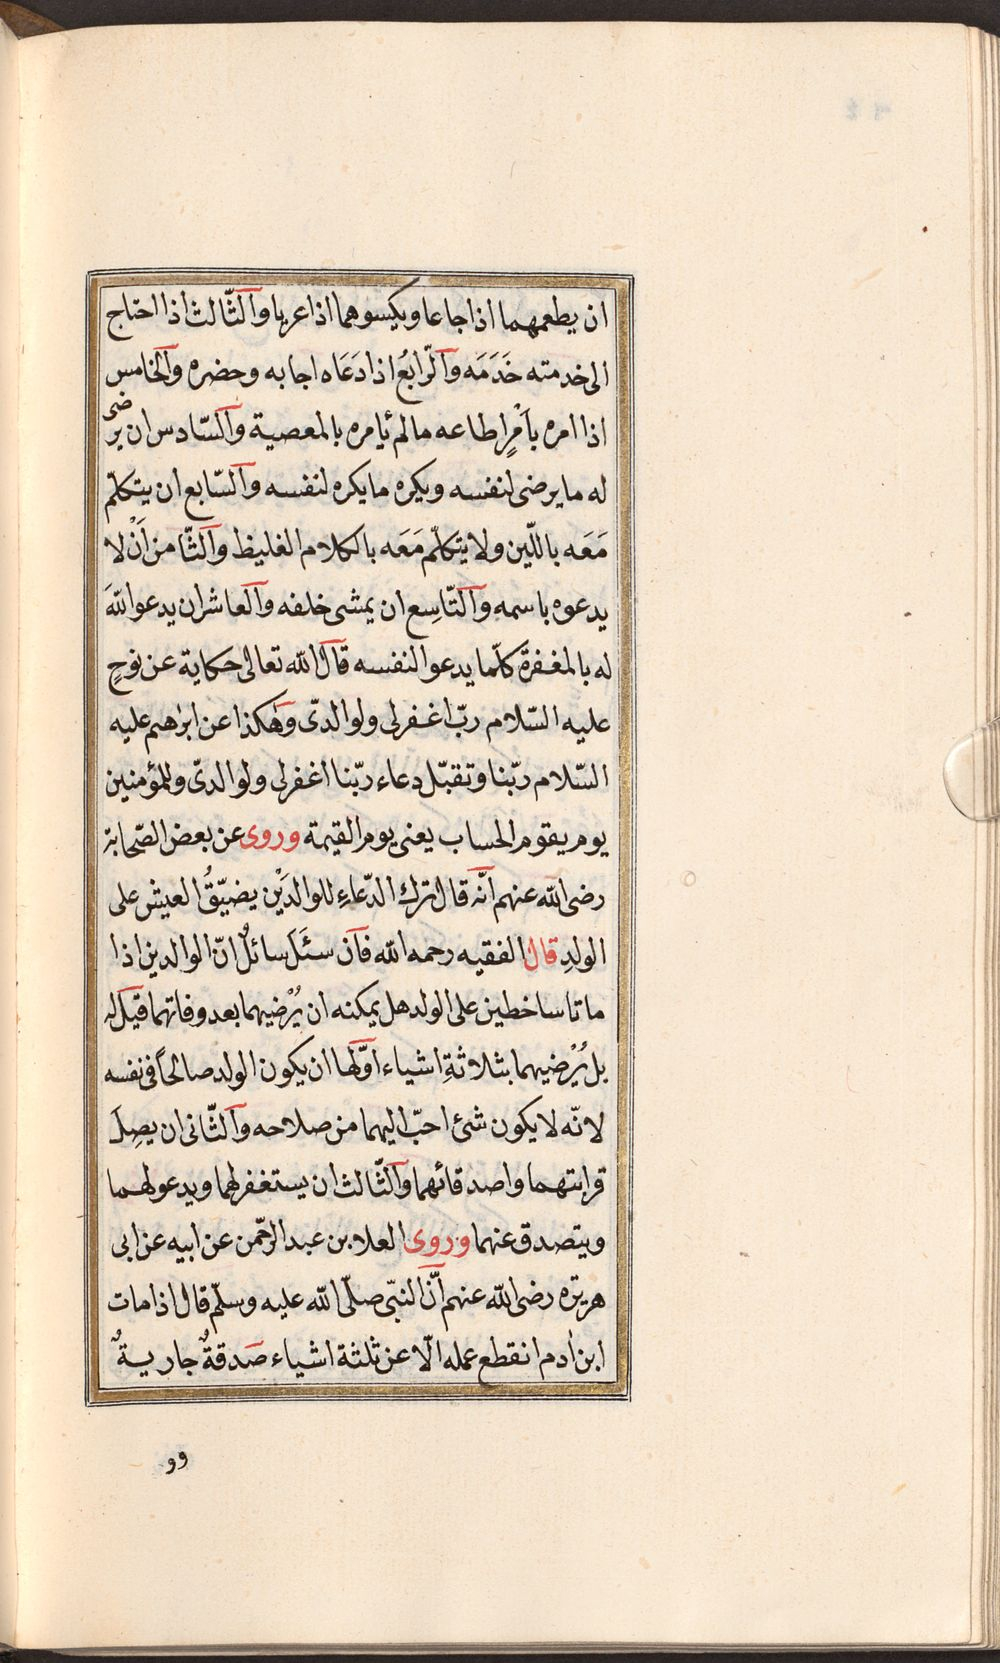 ان يطعمهما اذا جاعا ويكسوهما اذا عريا والثّالث اذا احتاج
الى خدمته خَدَمَه والرّابعُ اذا دَعَاه اجابه وحضره والخامس
اذا امره بأمْرٍ اطاعه مالم يأمره بالمعصية والسّادس ان يرضى
له ما يرضى لنفسه ويكره ما يكره لنفسه والسّابع ان يتكلّم
مَعَه باللّين ولا يتكلّم مَعَه بالكلام الغليظ والثّامن اَنْ لا
يدعوه باسمه والتّاسِع ان يمشى خلفه والعاشر ان يدعوا اللّهَ
له بالمغفرة كلّما يدعوا لنفسه قال اللّه تعالى حكاية عن نوحٍ
عليه السّلام ربّ اغفرلى ولوالدىّ وهٰكذا عن ابرٰهيم عليه
السّلام ربّنا وتقبّل دعاء ربّنا اغفرلى ولوالدىّ وللمؤمنين
يوم يقوم الحساب يعنى يوم القيمة وروى عن بعض الصّحابة
رضى اللّه عنهم انّه قال ترك الدّعاءِ للوالدَيْن يضيّقُ العيش على
الولدِ قال الفقيه رحمه اللّه فآن سئَلَ سائلٌ انّ الوالدين اذا
ماتا ساخطين على الولد هل يمكنه ان يُرْضيهما بعد وفاتهما قيل له
بل يُرْضيهما بثلاثةِ اشياء اوّلها ان يكون الولد صالحًا فى نفسه
لانّه لا يكون شئ احبّ اليهما من صلاحه والثّانى ان يصِلَ
قرابتهما واصدقائهما والثّالث ان يستغفر لهما ويدعولهما
ويتصدق عنهما وروى العلا بن عبد الرّحمن عن ابيه عن ابى
هريرة رضى اللّه عنهم انّ النبّى صلّى اللّه عليه وسلّم قال اذا مات
ابن اٰدم انقطع عمله الّا عن ثلثة اشياء صدقةٌ جاريةٌ
وو